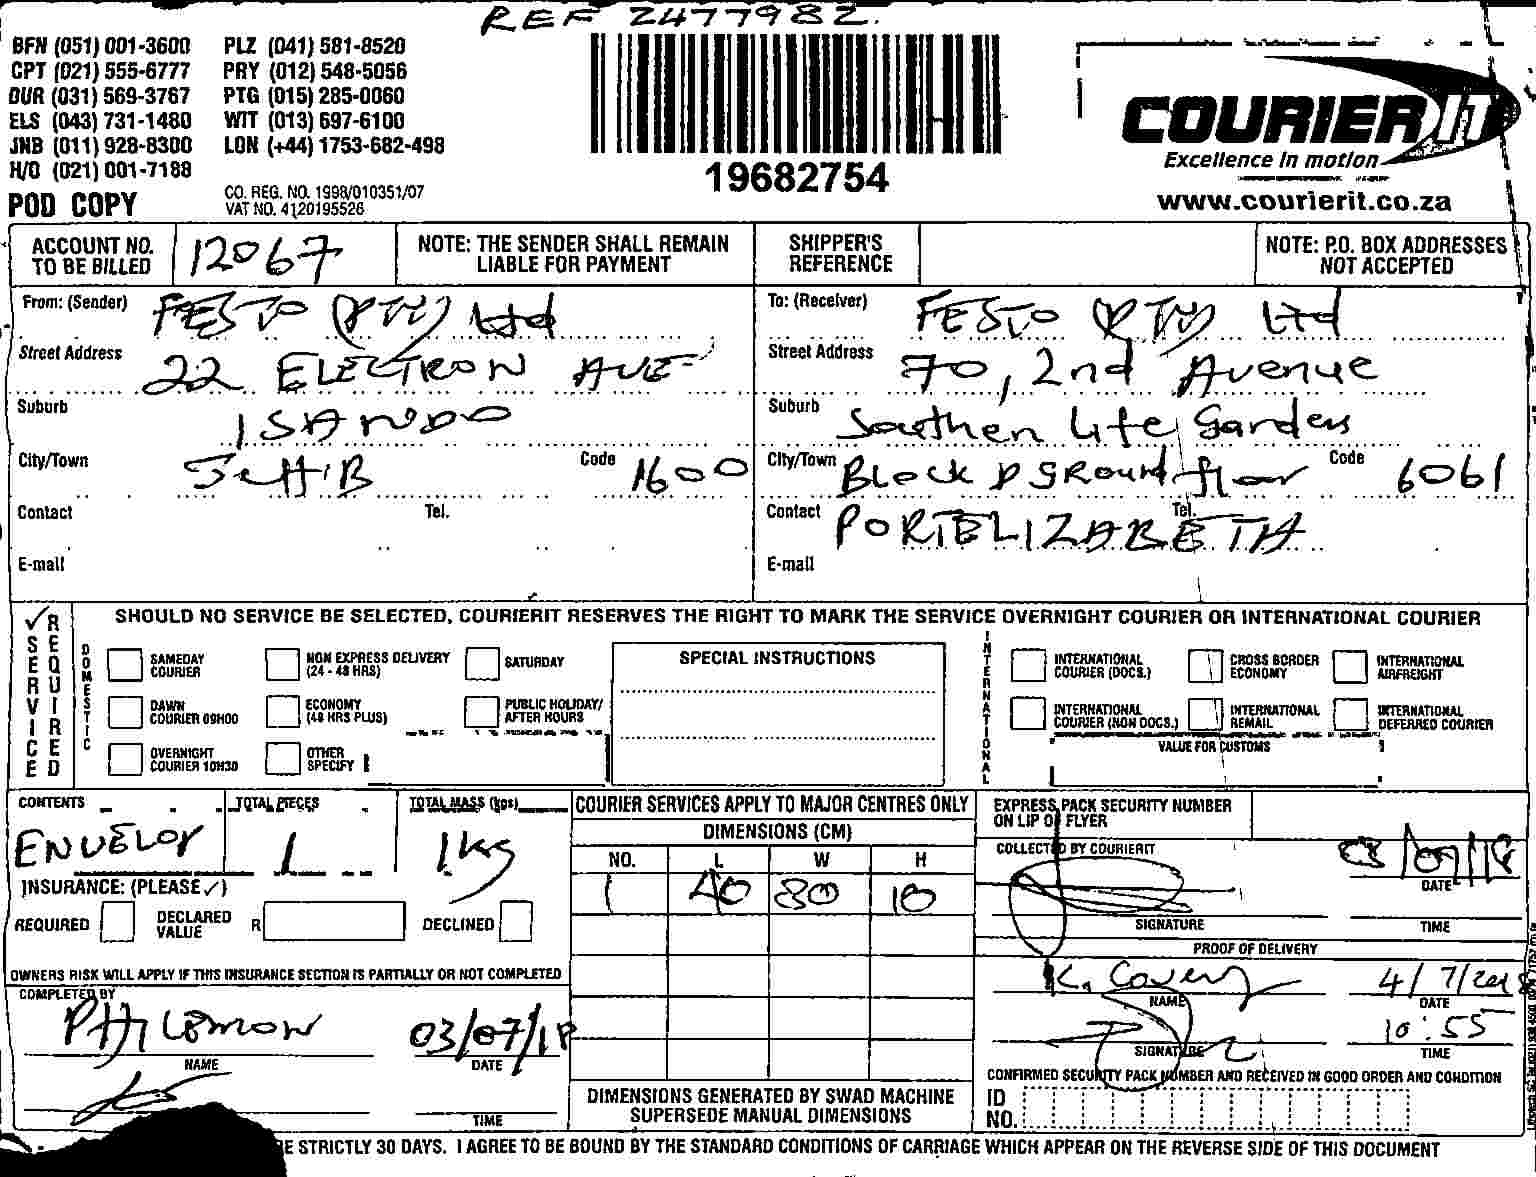 REF 2477982.
BFN (051) 001-3600 PLZ (041) 581-8520
CPT (021) 555-6777 PRY (012) 548-5056
DUR (031) 569-3767 PTG (015) 285-0060
ELS (043) 731-1480 WIT (013) 697-6100
JNB (011) 928-8300 LON (+44) 1753-682-498
H/O (021) 001-7188
POD COPY
CO. REG. NO. 1998/010351/07
VAT NO. 4120195526
19682754
COURIER IT
Excellence in motion
www.courierit.co.za
ACCOUNT NO. TO BE BILLED 12067
NOTE: THE SENDER SHALL REMAIN LIABLE FOR PAYMENT
SHIPPER'S REFERENCE
NOTE: P.O. BOX ADDRESSES NOT ACCEPTED
From: (Sender) FESTO (PTY) Ltd
Street Address 22 ELECTRON AVE
Suburb ISANDO
City/Town JHB Code 1600
Contact Tel.
E-mail
To: (Receiver) FESTO (PTY) Ltd
Street Address 70, 2nd Avenue
Suburb Southen Life Gardens
City/Town Block D GRound floor Code 6061
Contact PORTELIZABETH Tel.
E-mail
✓ SERVICE REQUIRED
SHOULD NO SERVICE BE SELECTED, COURIERIT RESERVES THE RIGHT TO MARK THE SERVICE OVERNIGHT COURIER OR INTERNATIONAL COURIER
DOMESTIC
SAMEDAY COURIER
NON EXPRESS DELIVERY (24 - 48 HRS)
SATURDAY
DAWN COURIER 09H00
ECONOMY (48 HRS PLUS)
PUBLIC HOLIDAY/ AFTER HOURS
OVERNIGHT COURIER 10H30
OTHER SPECIFY
SPECIAL INSTRUCTIONS
INTERNATIONAL
INTERNATIONAL COURIER (DOCS.)
CROSS BORDER ECONOMY
INTERNATIONAL AIRFREIGHT
INTERNATIONAL COURIER (NON DOCS.)
INTERNATIONAL REMAIL
INTERNATIONAL DEFERRED COURIER
VALUE FOR CUSTOMS
CONTENTS TOTAL PIECES TOTAL MASS (kgs)
ENVELOP 1 1kg
INSURANCE: (PLEASE ✓)
REQUIRED DECLARED VALUE R DECLINED
OWNERS RISK WILL APPLY IF THIS INSURANCE SECTION IS PARTIALLY OR NOT COMPLETED
COMPLETED BY
PHILEMON 03/07/18
NAME DATE
TIME
COURIER SERVICES APPLY TO MAJOR CENTRES ONLY
DIMENSIONS (CM)
NO. L W H
1 40 30 10
DIMENSIONS GENERATED BY SWAD MACHINE
SUPERSEDE MANUAL DIMENSIONS
EXPRESS PACK SECURITY NUMBER
ON LIP OF FLYER
COLLECTED BY COURIERIT
03/07/18
DATE
SIGNATURE TIME
PROOF OF DELIVERY
4/7/2018
NAME DATE
10:55
SIGNATURE TIME
CONFIRMED SECURITY PACK NUMBER AND RECEIVED IN GOOD ORDER AND CONDITION
ID NO.
E STRICTLY 30 DAYS. I AGREE TO BE BOUND BY THE STANDARD CONDITIONS OF CARRIAGE WHICH APPEAR ON THE REVERSE SIDE OF THIS DOCUMENT